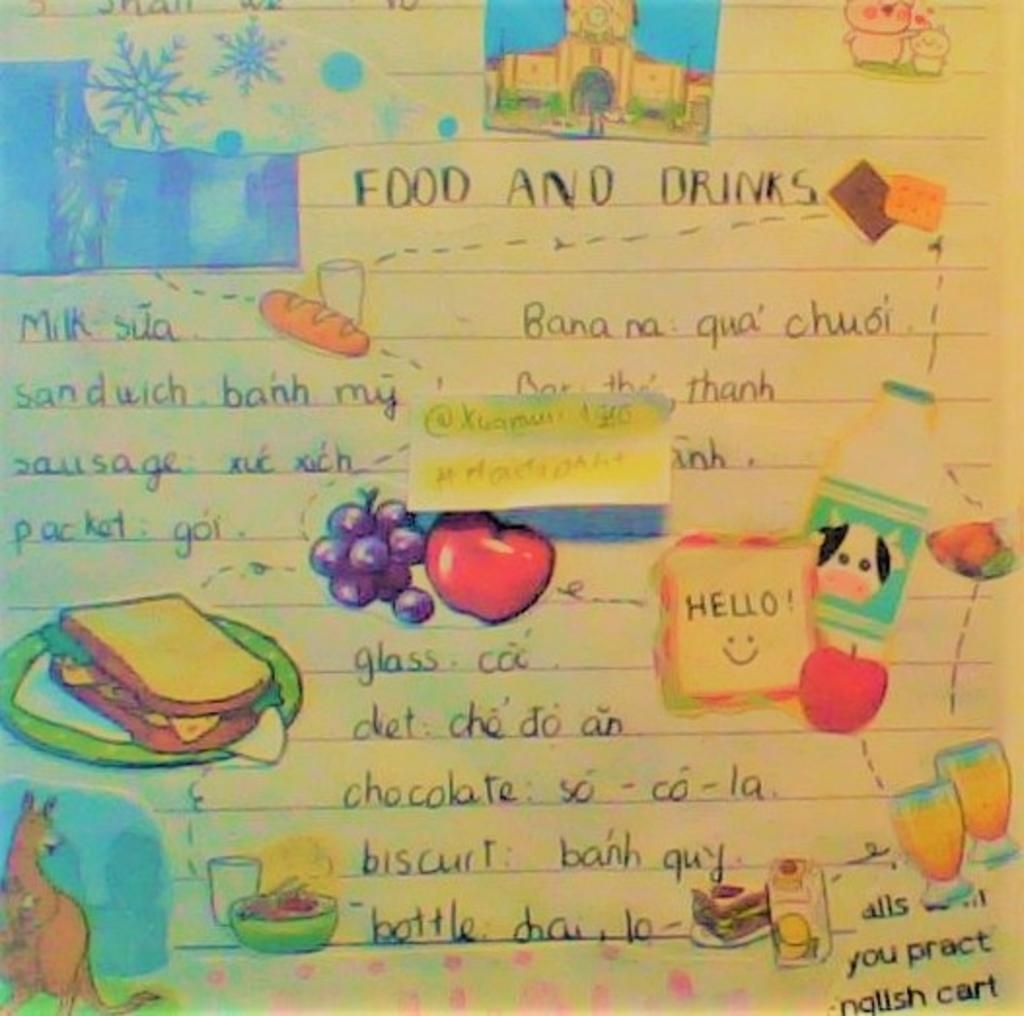 FOOD AND DRINKS
Milk: sữa.
Banana: quả chuối.
sandwich: bánh mỳ
thanh
sausage: xúc xích
packet: gói.
HELLO!
glass: cốc
diet: chế độ ăn
chocolate: sô-cô-la.
biscuit: bánh quy.
bottle: chai, lọ
alls
you pract
nglish cart